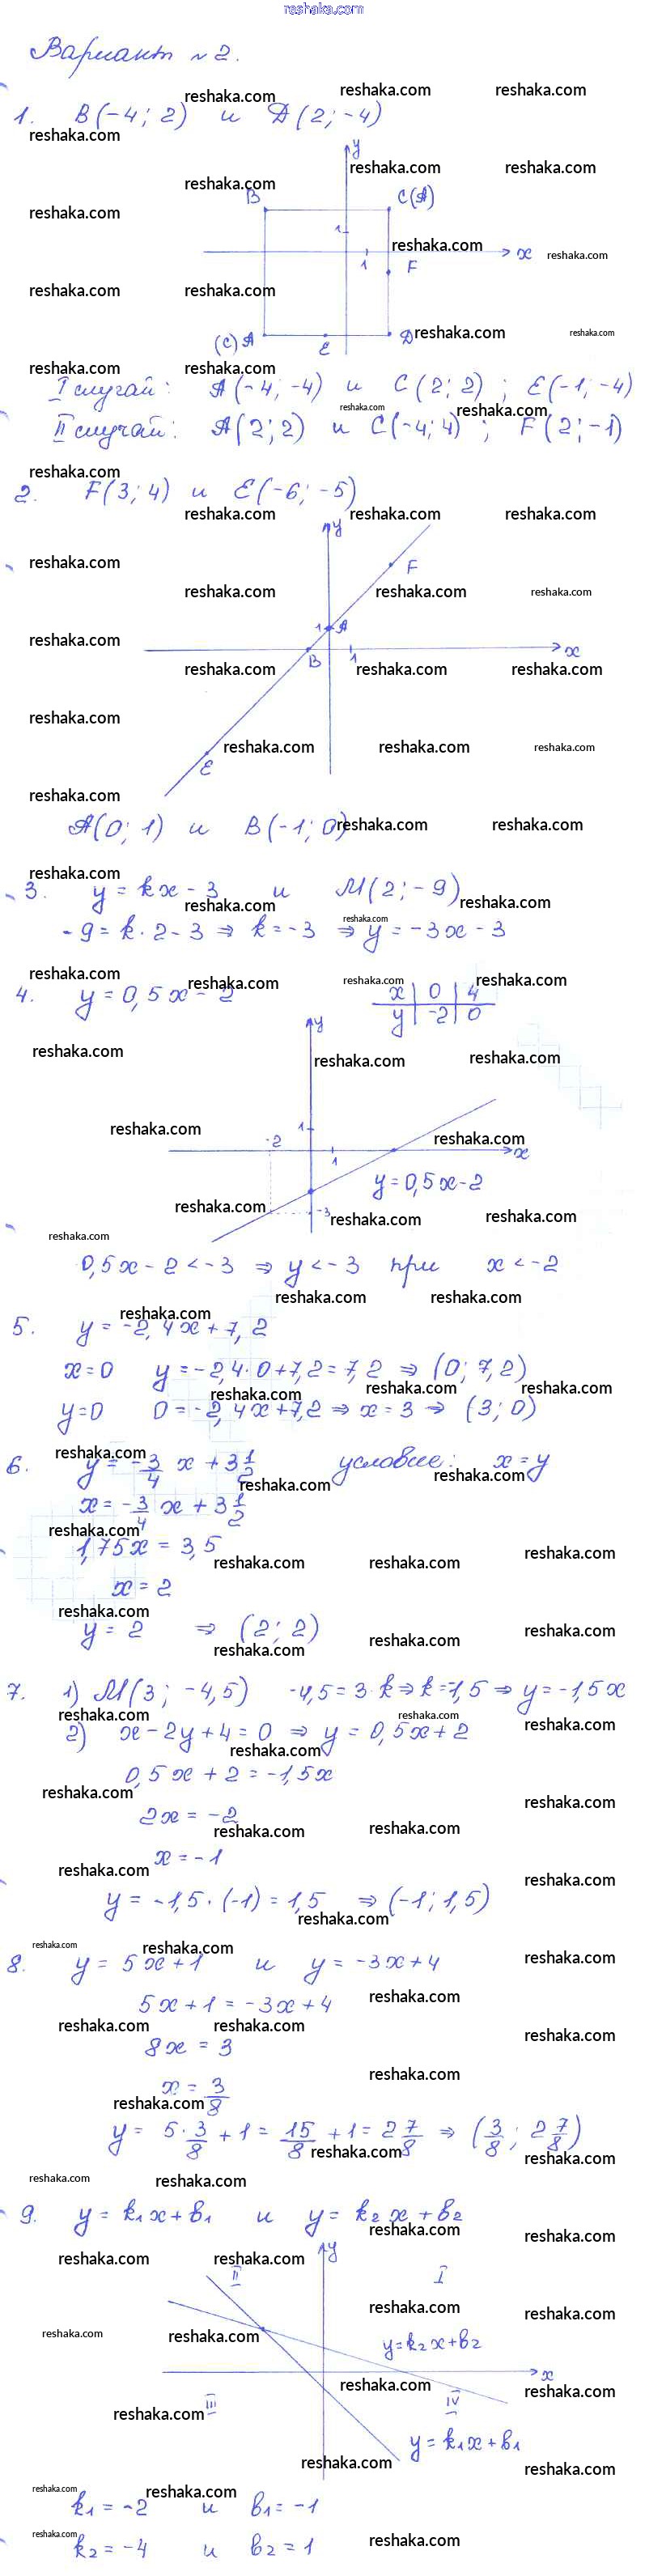 reshaka.com
Вариант №2.
1. B(-4; 2) и D(2; -4)
y
B C(A)
1
x
1 F
(C) A E D
I случай: A(-4; -4) и C(2; 2); E(-1; -4)
II случай: A(2; 2) и C(-4; 4); F(2; -1)
2. F(3; 4) и E(-6; -5)
y
F
1 A
B 1 x
E
A(0; 1) и B(-1; 0)
3. y = kx - 3 и M(2; -9)
-9 = k·2 - 3 ⇒ k = -3 ⇒ y = -3x - 3
4. y = 0,5x - 2
x | 0 | 4
y | -2 | 0
y
1
-2 1 x
y = 0,5x - 2
-3
0,5x - 2 < -3 ⇒ y < -3 при x < -2
5. y = -2,4x + 7,2
x = 0 y = -2,4·0 + 7,2 = 7,2 ⇒ (0; 7,2)
y = 0 0 = -2,4x + 7,2 ⇒ x = 3 ⇒ (3; 0)
6. y = -3/4 x + 3 1/2 условие: x = y
x = -3/4 x + 3 1/2
1,75x = 3,5
x = 2
y = 2 ⇒ (2; 2)
7. 1) M(3; -4,5) -4,5 = 3·k ⇒ k = -1,5 ⇒ y = -1,5x
2) x - 2y + 4 = 0 ⇒ y = 0,5x + 2
0,5x + 2 = -1,5x
2x = -2
x = -1
y = -1,5·(-1) = 1,5 ⇒ (-1; 1,5)
8. y = 5x + 1 и y = -3x + 4
5x + 1 = -3x + 4
8x = 3
x = 3/8
y = 5·3/8 + 1 = 15/8 + 1 = 2 7/8 ⇒ (3/8; 2 7/8)
9. y = k₁x + b₁ и y = k₂x + b₂
y
II I
y = k₂x + b₂
x
III IV
y = k₁x + b₁
k₁ = -2 и b₁ = -1
k₂ = -4 и b₂ = 1